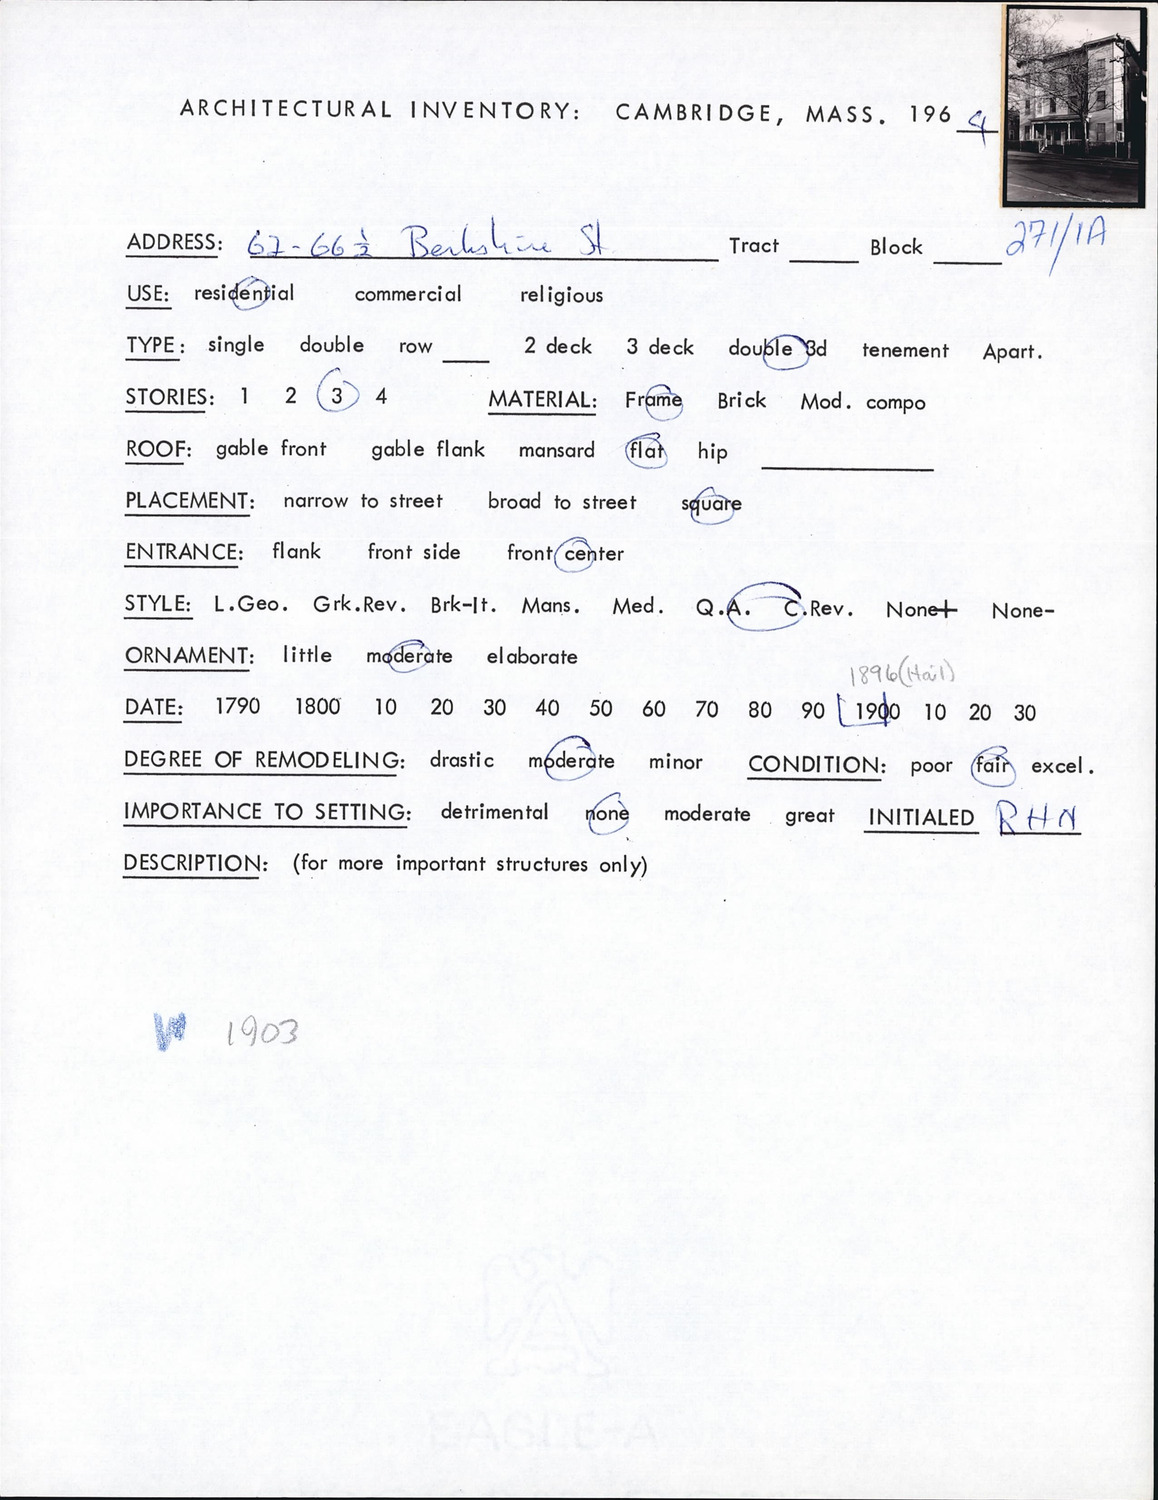 ARCHITECTURAL INVENTORY: CAMBRIDGE, MASS. 1964
ADDRESS: 62-66½ Berkshire St. Tract ___ Block ___ 271/1A
USE: residential commercial religious
TYPE: single double row ___ 2 deck 3 deck double 3d tenement Apart.
STORIES: 1 2 3 4 MATERIAL: Frame Brick Mod. compo
ROOF: gable front gable flank mansard flat hip ___
PLACEMENT: narrow to street broad to street square
ENTRANCE: flank front side front center
STYLE: L.Geo. Grk.Rev. Brk-It. Mans. Med. Q.A. C.Rev. None+ None-
ORNAMENT: little moderate elaborate
1896 (Hail)
DATE: 1790 1800 10 20 30 40 50 60 70 80 90 1900 10 20 30
DEGREE OF REMODELING: drastic moderate minor CONDITION: poor fair excel.
IMPORTANCE TO SETTING: detrimental none moderate great INITIALED RHN
DESCRIPTION: (for more important structures only)
W 1903
EAGLE-A